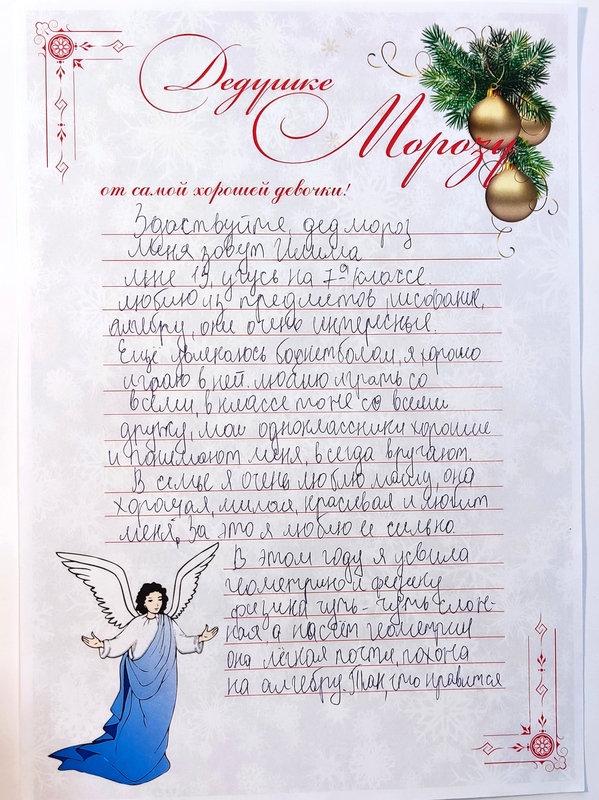 Дедушке
Морозу
от самой хорошей девочки!
Здраствуйте, дед мороз
Меня зовут
мне 13, учусь на 7-9 классе.
люблю из предметов рисование,
алгебру, они очень интересные.
Ещё увлекаюсь баскетболом, я хорошо
играю в ней. люблю играть со
всеми, в классе тоже со всеми
дружу, мои одноклассники хорошие
и понимают меня, всегда вручают.
В семье я очень люблю маму, она
хорошая, милая, красивая и любит
меня, за это я люблю её сильно
В этом году я усвила
геометрию и физику
физика чуть-чуть слож-
ная а насчёт геометрии
она лёгкая почти, похожа
на алгебру. Так, что нравится